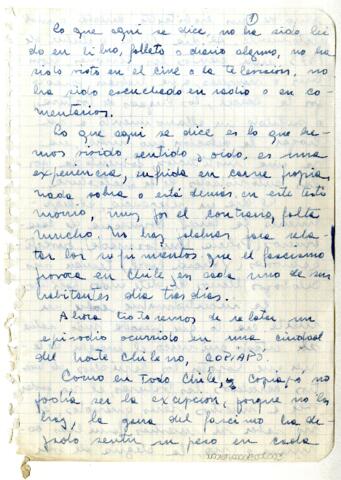 1
Lo que aquí se dice, no ha sido leí
do en libro, folleto o diario alguno, no ha
sido visto en el cine o la televisión, no
ha sido escuchado en radio o en co-
mentarios.
Lo que aquí se dice es lo que he-
mos vivido, sentido y oído, es una
experiencia, sufrida en carne propia
nada sobra o está demás en este testi
monio, muy por el contrario, falta
mucho. No hay palabras para rela-
tar los sufrimientos que el fascismo
provoca en Chile, en cada uno de sus
habitantes día tras día.
Ahora trataremos de relatar un
episodio ocurrido en una ciudad
del Norte Chileno, COPIAPÓ.
Como en Todo Chile, Copiapó no
podía ser la excepción, porque no las
hay, la garra del fascismo ha de-
jado sentir su peso en cada